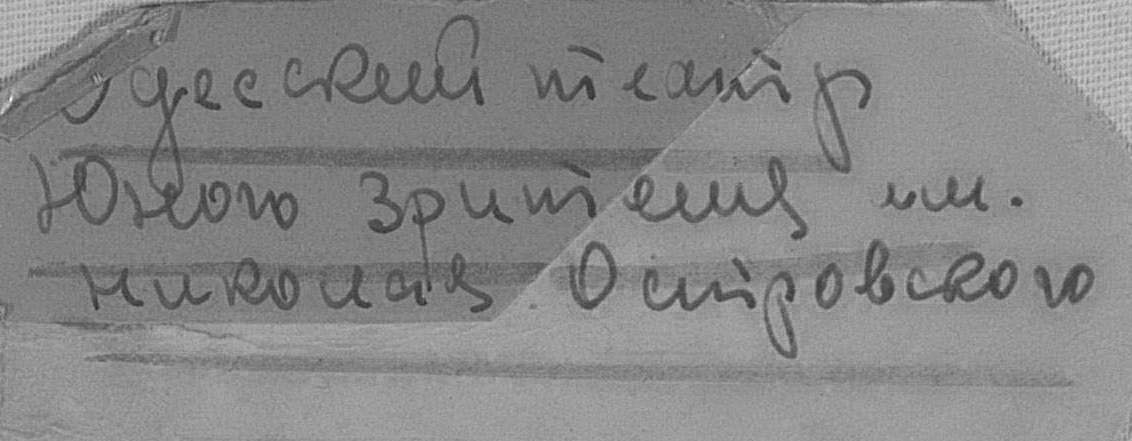 Одесский театр
Юного зрителя им.
николая Островского